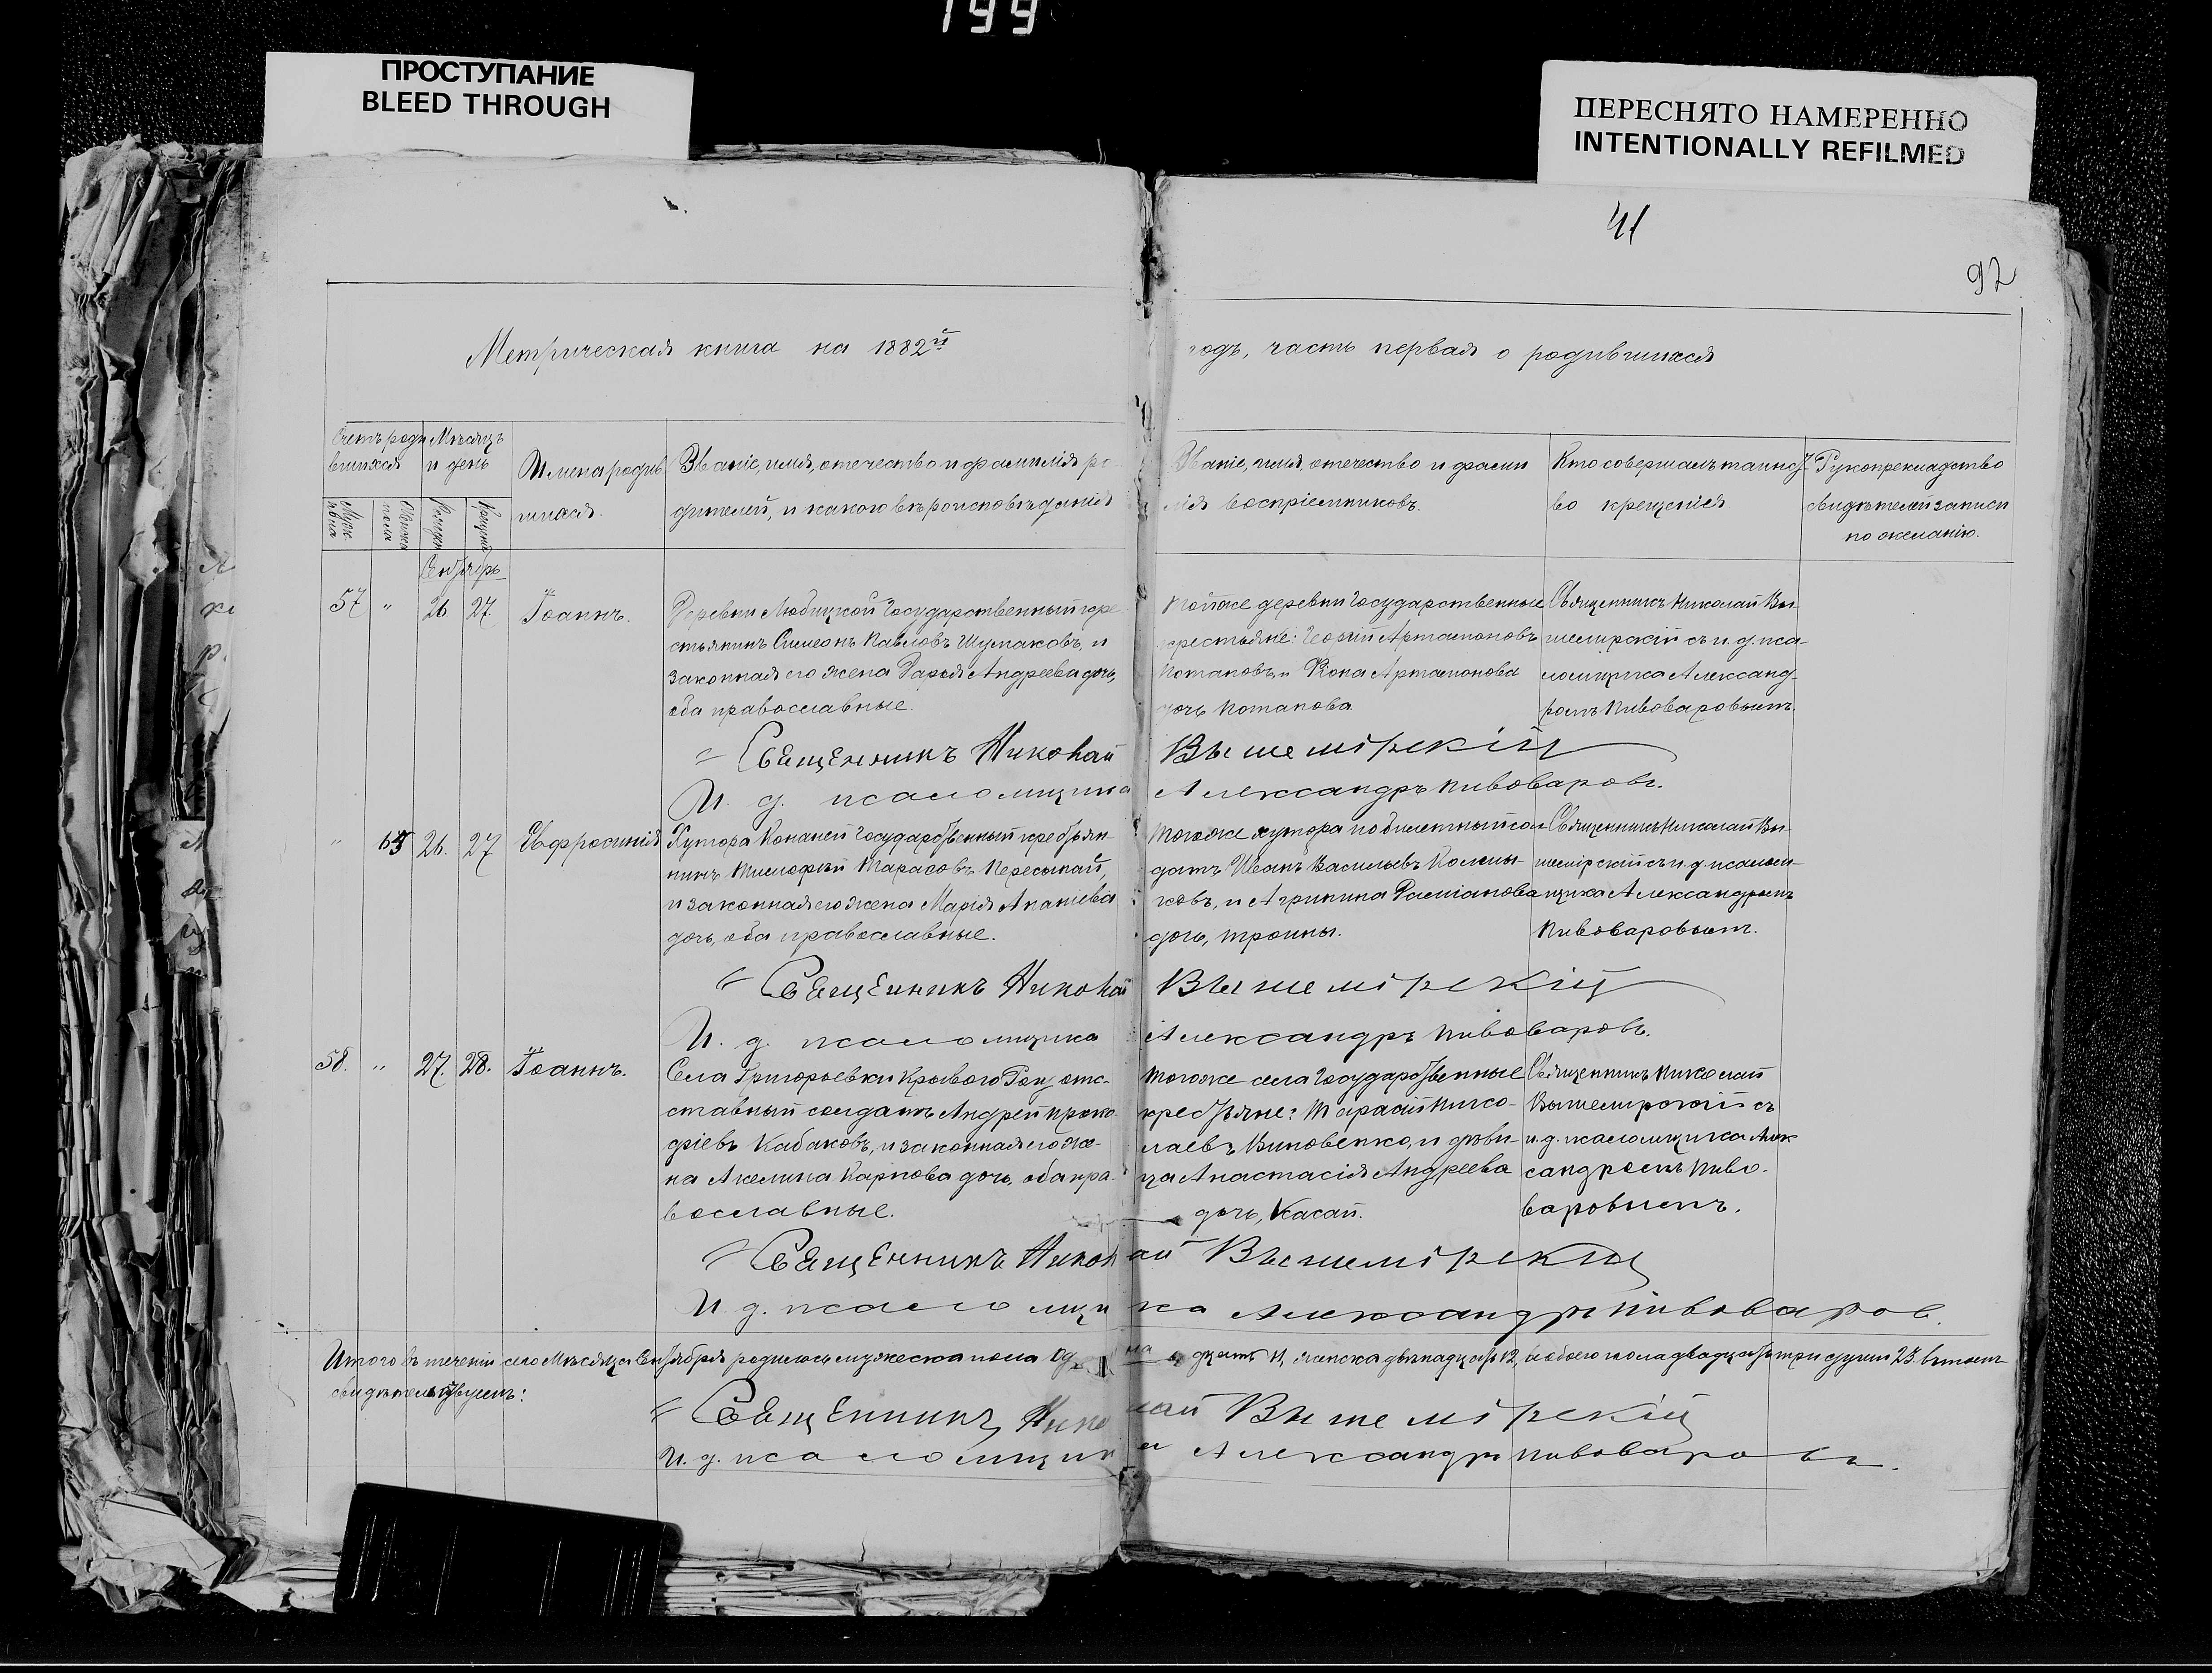 199
ПРОСТУПАНИЕ
BLEED THROUGH
ПЕРЕСНЯТО НАМЕРЕННО
INTENTIONALLY REFILMED
41
92
Метрическая книга на 1882й
годъ, часть первая о родившихся
Счетъ роди
вшихся
Мѣсяцъ
и день
Имена родив
шихся.
Званіе, имя, отечество и фамилія ро
дителей, и какого вѣроисповѣданія
Званіе, имя, отечество и фами
лія воспріемниковъ.
Кто совершалъ таинст
во крещенія
Рукоприкладство
свидѣтелей записи
по желанію.
Сентябрь
57 " 26 27. Іоаннъ.
Деревни Любицкой Государственный кре
стьянинъ Симеонъ Павловъ Шумаковъ, и
законная его жена Дарья Андреева дочь,
оба православные.
Тойже деревни Государственные
крестьяне: Георгій Артамоновъ
Потаповъ и Артамонова
дочь Потапова
Священникъ Николай Вы-
шемирскій съ и. д. пса-
ломщика Александ-
ромъ Пивоваровымъ.
Священникъ Николай Вышемірскій
И. д. псаломщика Александръ Пивоваровъ.
" 26. 27 Евфросинія
Хутора Государственный крестьян-
нинъ Тимофей Тарасовъ Пересыпай,
и законная его жена Марія Ананіева
дочь, оба православные.
Тогоже хутора по билетный сол
датъ Иванъ Васильевъ
ковъ, и Агрипина Даміанова
дочь,
Священникъ Николай Вы-
шемірскій съ и. д. псалом-
щика Александромъ
Пивоваровымъ.
Священникъ Николай Вышемірскій
И. д. псаломщика Александръ Пивоваровъ.
58. " 27. 28. Іоаннъ.
Села Григорьевки Криваго Рогу отс-
ставный солдатъ Андрей Проко
фіевъ Кабаковъ, и законная его же-
на Акелина Карпова дочь, оба пра-
вославные.
Тогоже села Государственные
крестьяне: Тарасій Нико-
лаевъ Виновенко, и дѣви
ца Анастасія Андреева
дочь, Касай.
Священникъ Николай
Вышемирскій съ
и. д. псаломщика Алек
сандромъ Пиво-
варовымъ.
Священникъ Николай Вышемірскій
И. д. псаломщика Александръ Пивоваров.
Итого въ теченіи сего Мѣсяца Сентября родилось мужеска пола одинадцать 11, женска двѣнадцать 12, обоего пола двадцать три души 23. въ томъ
свидѣтельствуемъ:
Священникъ Николай Вышемірскій
И. д. псаломщика Александръ Пивоваровъ.